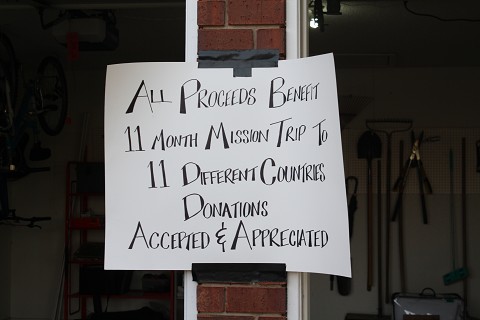 All Proceeds Benefit
11 Month Mission Trip To
11 Different Countries
Donations
Accepted & Appreciated